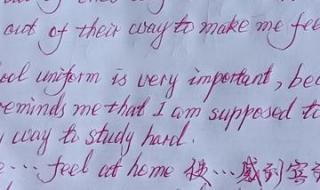 out of their way to make me fee
ool uniform is very important, bec
reminds me that I am supposed to
way to study hard.
e ... feel at home 使…感到宾